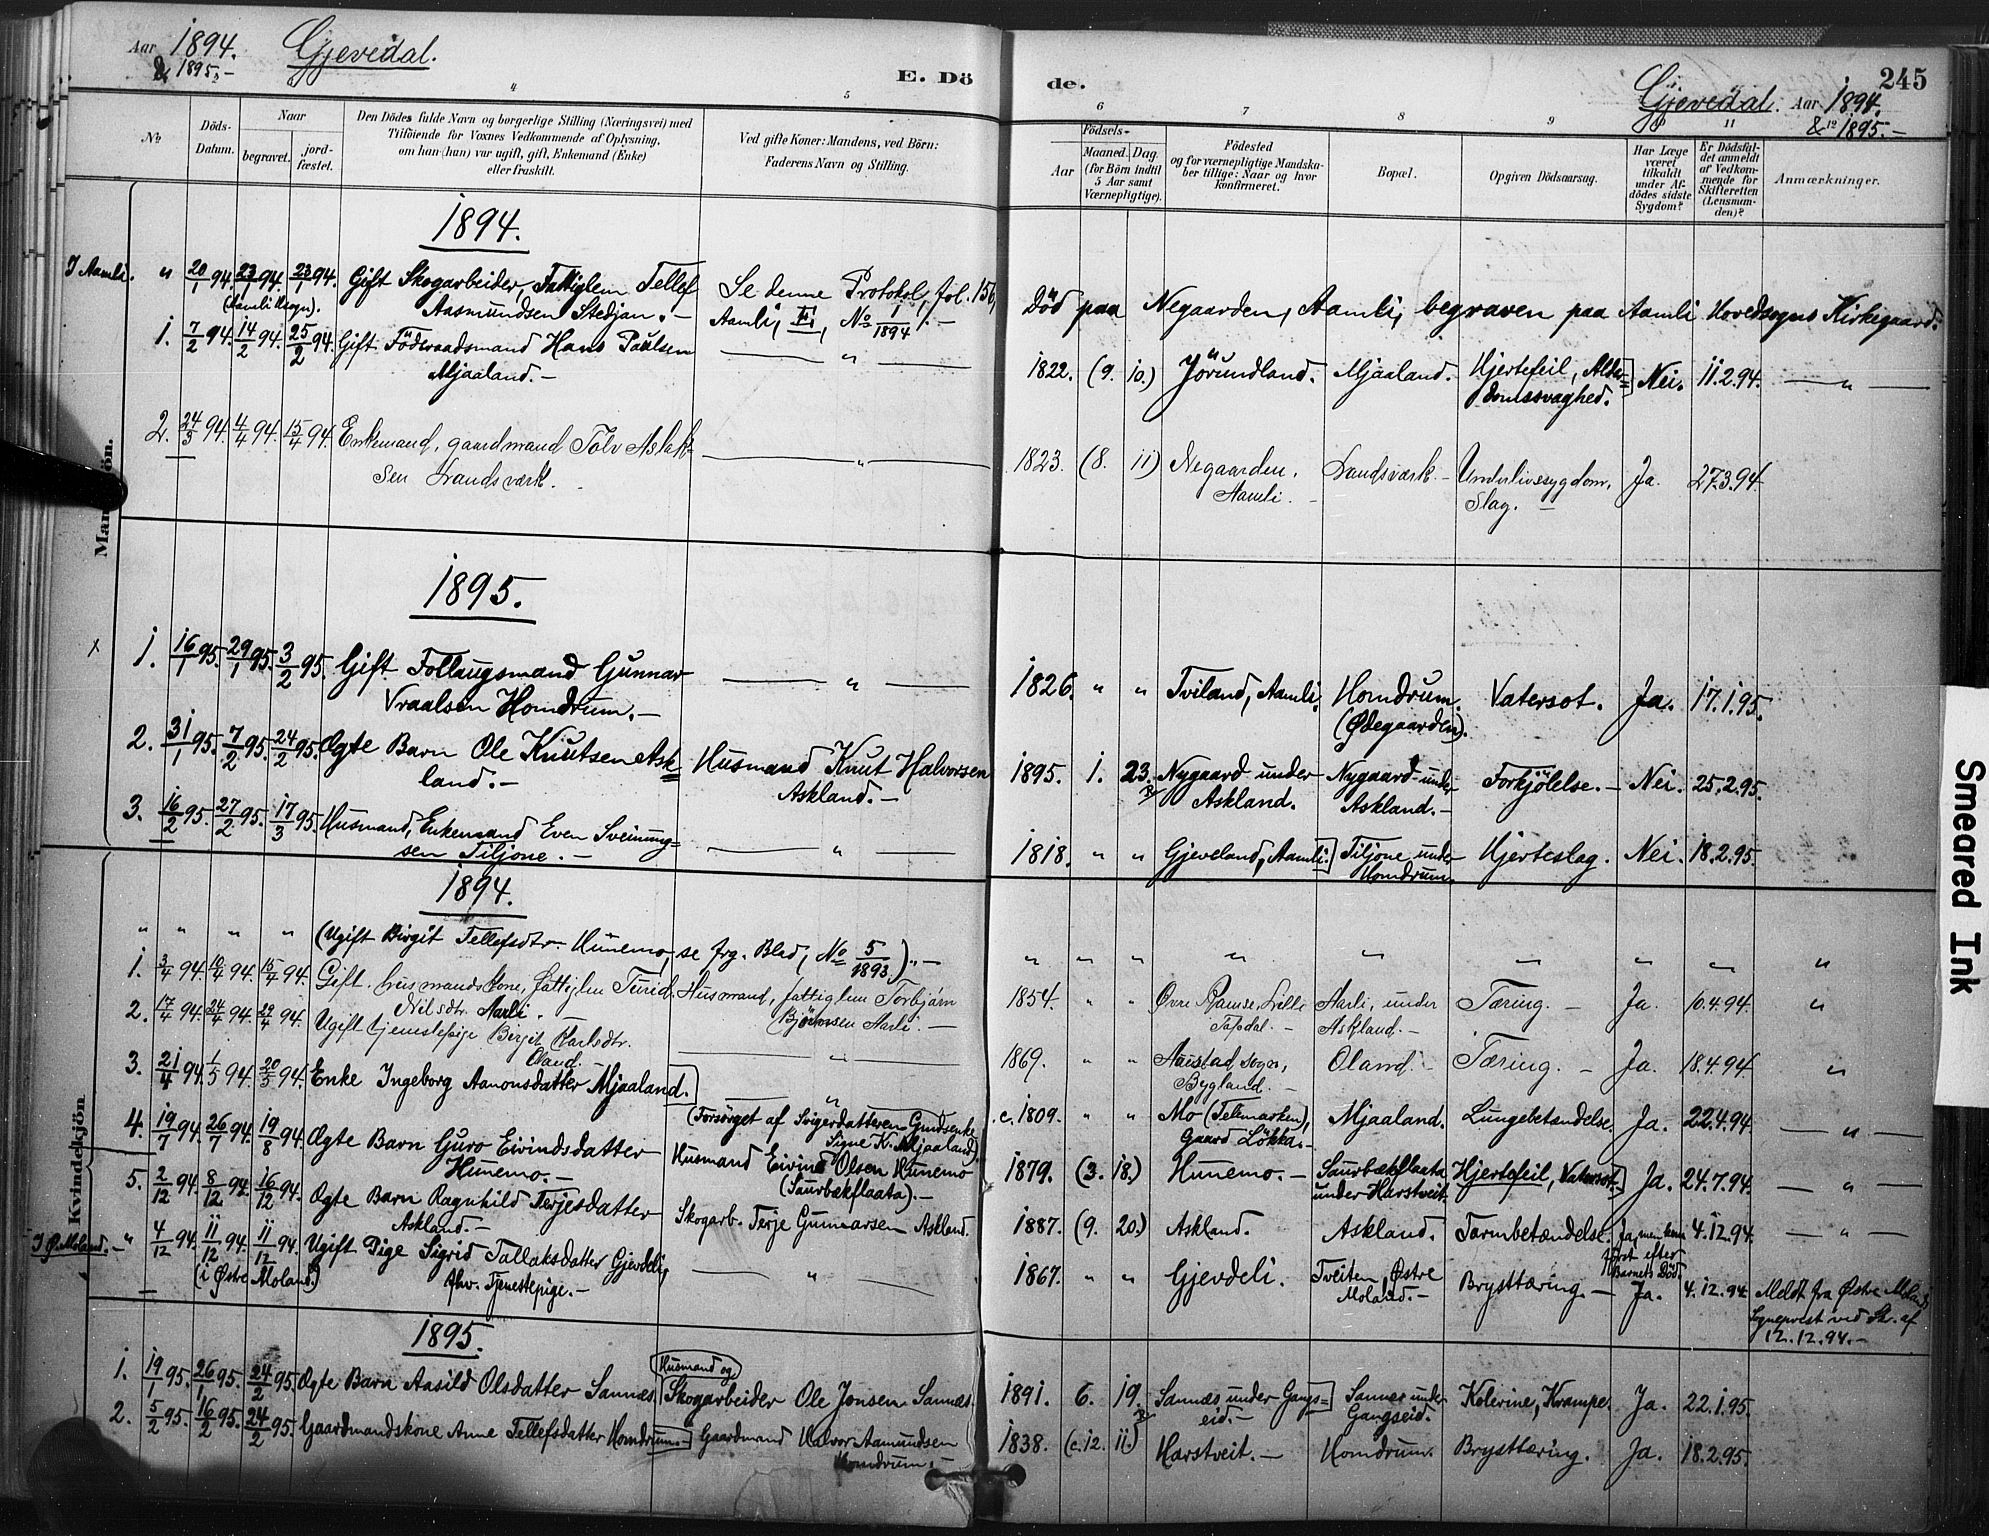 Aar 1894. Gjevedal.
& 1895.-
E. Dö
de.
Gjevedal. Aar 1894. 245
& 1895.-
4 5 6 7 8 9 11 12
No
Döds-
Datum.
Naar
begravet.
jord-
fæstet.
Den Dödes fulde Navn og borgerlige Stilling (Næringsvei) med
Tilföiende for Voxnes Vedkommende af Oplysning,
om han (hun) var ugift, gift, Enkemand (Enke)
eller fraskilt.
Ved gifte Koner: Mandens, ved Börn:
Faderens Navn og Stilling.
Födsels-
Aar
Maaned. Dag.
(for Börn indtil
5 Aar samt
Værnepligtige).
Födested
og for værnepligtige Mandska-
ber tillige: Naar og hvor
konfirmeret.
Bopæl.
Opgiven Dödsaarsag.
Har Læge
været
tilkaldt
under Af-
dödes sidste
Sygdom?
Er Dödsfal-
det anmeldt
af Vedkom-
mende for
Skifteretten
(Lensman-
den)?
Anmærkninger.
Mandkjön.
1894.
I Aamli. " 20/1 94. 23/1 94. 23/1 94. Gift Skogarbeider, Fattiglem Tellef Se denne Protokol, fol. 156, Död paa Negaarden, Aamli, begraven paa Aamli Hovedsogns Kirkegaard.
(Aamli Hsogn). Aasmundsen Stedjan.- Aamli, E, No 1/1894.-
1. 7/2 94. 14/2 94. 25/2 94. Gift Föderaadsmand Hans Paulsen " 1822. (9. 10.) Jörundland. Mjaaland. Hjertefeil, Alder= Nei. 11.2.94. "
Mjaaland.- domssvaghed.
2. 24/3 94. 4/4 94. 15/4 94. Enkemand, gaardmand Tolv Aslak- " 1823. (8. 11) Negaarden, Landsværk.- Underlivssygdom, Ja. 27.3.94.
sen Landsværk. Aamli.- Slag.-
1895.
x 1. 16/1 95. 29/1 95. 3/2 95. Gift Follaugsmand Gunnar " 1826. " " Tviland, Aamli. Homdrum. Vatersot. Ja. 17.1.95.
Vraalsen Homdrum.- (Ødegaarden).
2. 31/1 95. 7/2 95. 24/2 95. Ægte Barn Ole Knutsen Ask= Husmand Knut Halvorsen 1895. 1. 23. Nygaard under Nygaard under Forkjölelse.- Nei. 25.2.95.
land.- Askland.- Askland. Askland.-
3. 16/2 95. 27/2 95. 17/3 95. Husmand, Enkemand Even Sveinung= " 1818. " " Gjeveland, Aamli. Tiljone under Hjerteslag. Nei. 18.2.95.
sen Tiljone.- Homdrum.
Kvindekjön
1894.
" " " " (Ugift Birgit Tellefsdtr. Hunemo, se frg. Blad, No 5/1893.)"- " " " " " " " " "
1. 3/4 94. 10/4 94. 15/4 94. Gift husmandskone, fattiglem Turid Husmand, fattiglem Torbjörn 1854. " " Övre Ramse, Lille Aarli, under Tæring.- Ja. 10.4.94. "
Nilsdtr. Aarli. Björnsen Aarli.- Topdal.- Askland.-
2. 17/4 94. 24/4 94. 29/4 94. Ugift tjenestepige Birgit Karlsdtr. " 1869. " " Austad sogn, Oland.- Tæring.- Ja. 18.4.94. "
Oland. Bygland.-
3. 21/4 94. 1/5 94. 20/5 94. Enke Ingeborg Aanonsdatter Mjaaland. " c. 1809. " " Mo (Telemarken), Mjaaland. Lungebetændelse. Ja. 22.4.94. "
(Forsörget af Svigerdatteren Gaardenke Gaard Lökka.-
Signe K. Mjaaland).
4. 19/7 94. 26/7 94. 19/8 94. Ægte Barn Guro Eivindsdatter Husmand Eivind Olsen Hunemo 1879. (3. 18.) Hunemo.- Saurbækflaata Hjertefeil, Vatersot. Ja. 24.7.94. "
Hunemo.- (Saurbækflaata).- under Harstveit.
5. 2/12 94. 8/12 94. 16/12 94. Ægte Barn Ragnhild Terjesdatter Skogarb. Terje Gunnarsen Askland. 1887. (9. 20.) Askland. Askland. Tarmbetændelse. Ja, men kom 4.12.94. "
Askland.- först efter
Barnets Död.
I Ø. Moland.- " 4/12 94. 11/12 94. 11/12 94. Ugift Pige Sigrid Tallaksdatter Gjevdeli, " 1867. " " Gjevdeli. Tveiten, Østre Brysttæring.- Ja. 4.12.94. Meldt fra Østre Molands
(i Østre Moland.) Tjenestepige.- Moland.- Sogneprest ved Skr. af
12.12.94.-
1895.
1. 19/1 95. 26/1 95. 24/2 95. Ægte Barn Aasild Olsdatter Sannæs. Husmand og Skogarbeider Ole Jonsen Sannæs. 1891. 6. 19. Sannæs under Gangs= Sannæs under Kolerine, Krampe. Ja. 22.1.95.
eid.- Gangseid.
2. 5/2 95. 16/2 95. 24/2 95. Gaardmandskone Anne Tellefsdatter Homdrum.- Gaardmand Halvor Aamundsen 1838. (c. 12. 11.) Harstveit.- Homdrum. Brysttæring. Ja. 18.2.95.
Homdrum.-
Smeared Ink